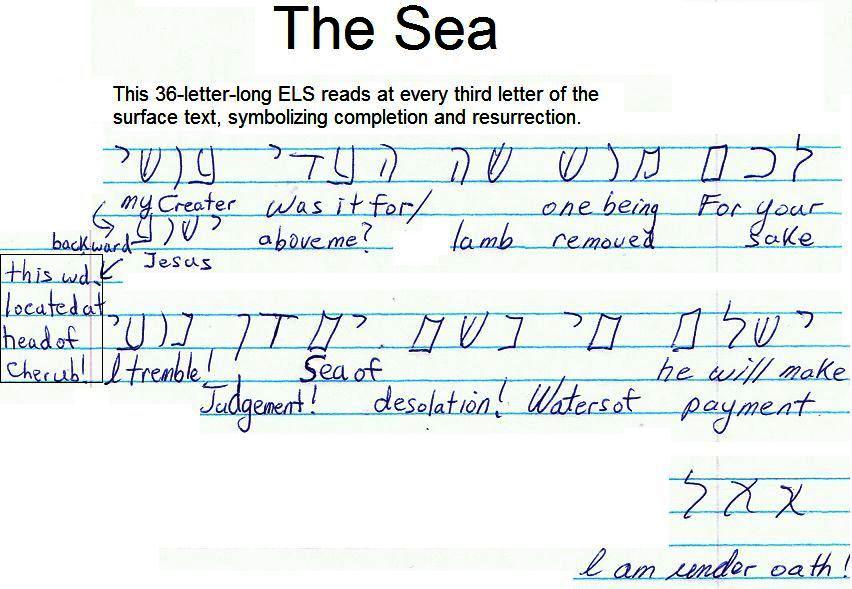 The Sea
This 36-letter-long ELS reads at every third letter of the
surface text, symbolizing completion and resurrection.
לכם מוש שה העדי עושי
my Creater was it for/ one being For your
backward ישוע above me? lamb removed sake
Jesus
this wd.
located at
head of
Cherub!
ישלם מי נשם ים דן נושי
I tremble! Sea of he will make
Judgement! desolation! Waters of payment
אאל
I am under oath!